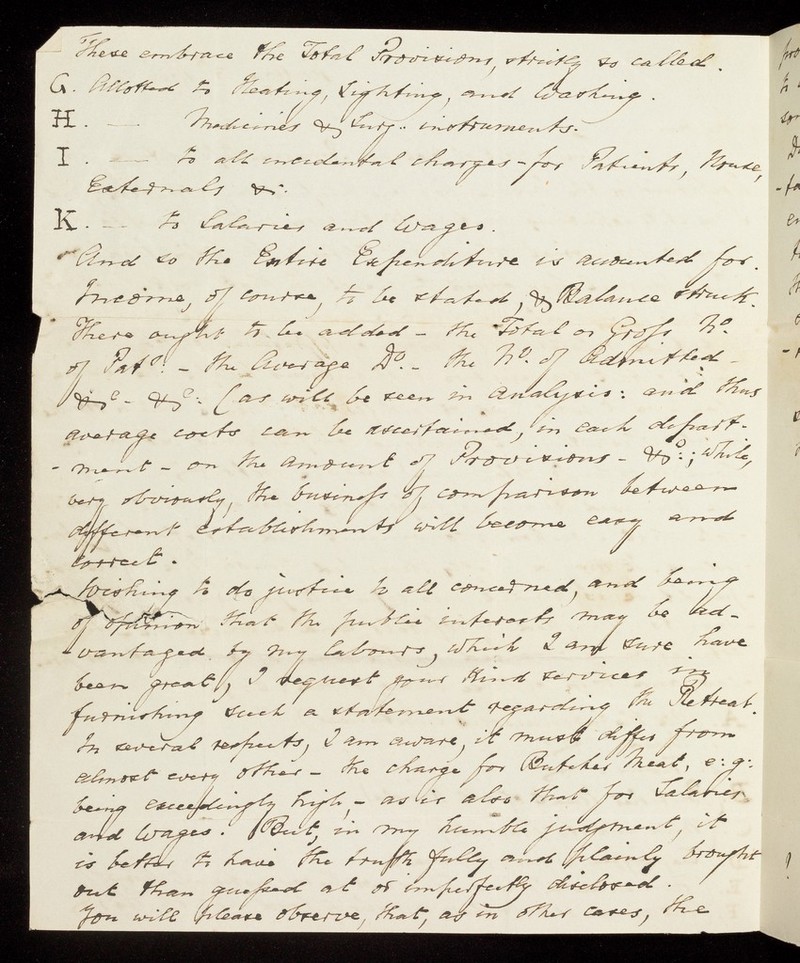 These embrace the Total Provisions, strictly so called.
G. Allotted to Heating, Lighting, and Washing.
H. — Medicines & Surg.. instruments.
I. — to all incidental charges - for Patients, House,
Externals &c.
K. — to Salaries and Wages.
And so the Entire Expenditure is accounted for.
Income, of course, to be stated, & Balance struck.
There ought to be added - the Total or Gross No.
of Pats. - the Average Do. - the No. of Admitted -
&c. - &c: (as will be seen in Analysis: and thus
average costs can be ascertained, in each depart-
- ment - on the amount of Provisions - &c.; while,
very obviously, the business of comparison between
different establishments will become easy and
correct.
Wishing to do justice to all concerned, and being
of opinion that the public interests may be ad-
- vantaged by my labours, which I am sure have
been great, I request your kind services in
furnishing such a statement regarding the Retreat.
In several respects, I am aware, it must differ from
almost every other - the charge for Butcher Meat, e:g:
being exceedingly high, - as is also that for Salaries
and Wages. But, in my humble judgment, it
is better to have the truth fully and plainly brought
out than guessed at or imperfectly disclosed.
You will please observe, that, as in other cases, the